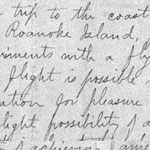 trip to the coast
Roanoke Island,
riments with a fly
flight is possible
ation for pleasure
light possibility of a
of achieving